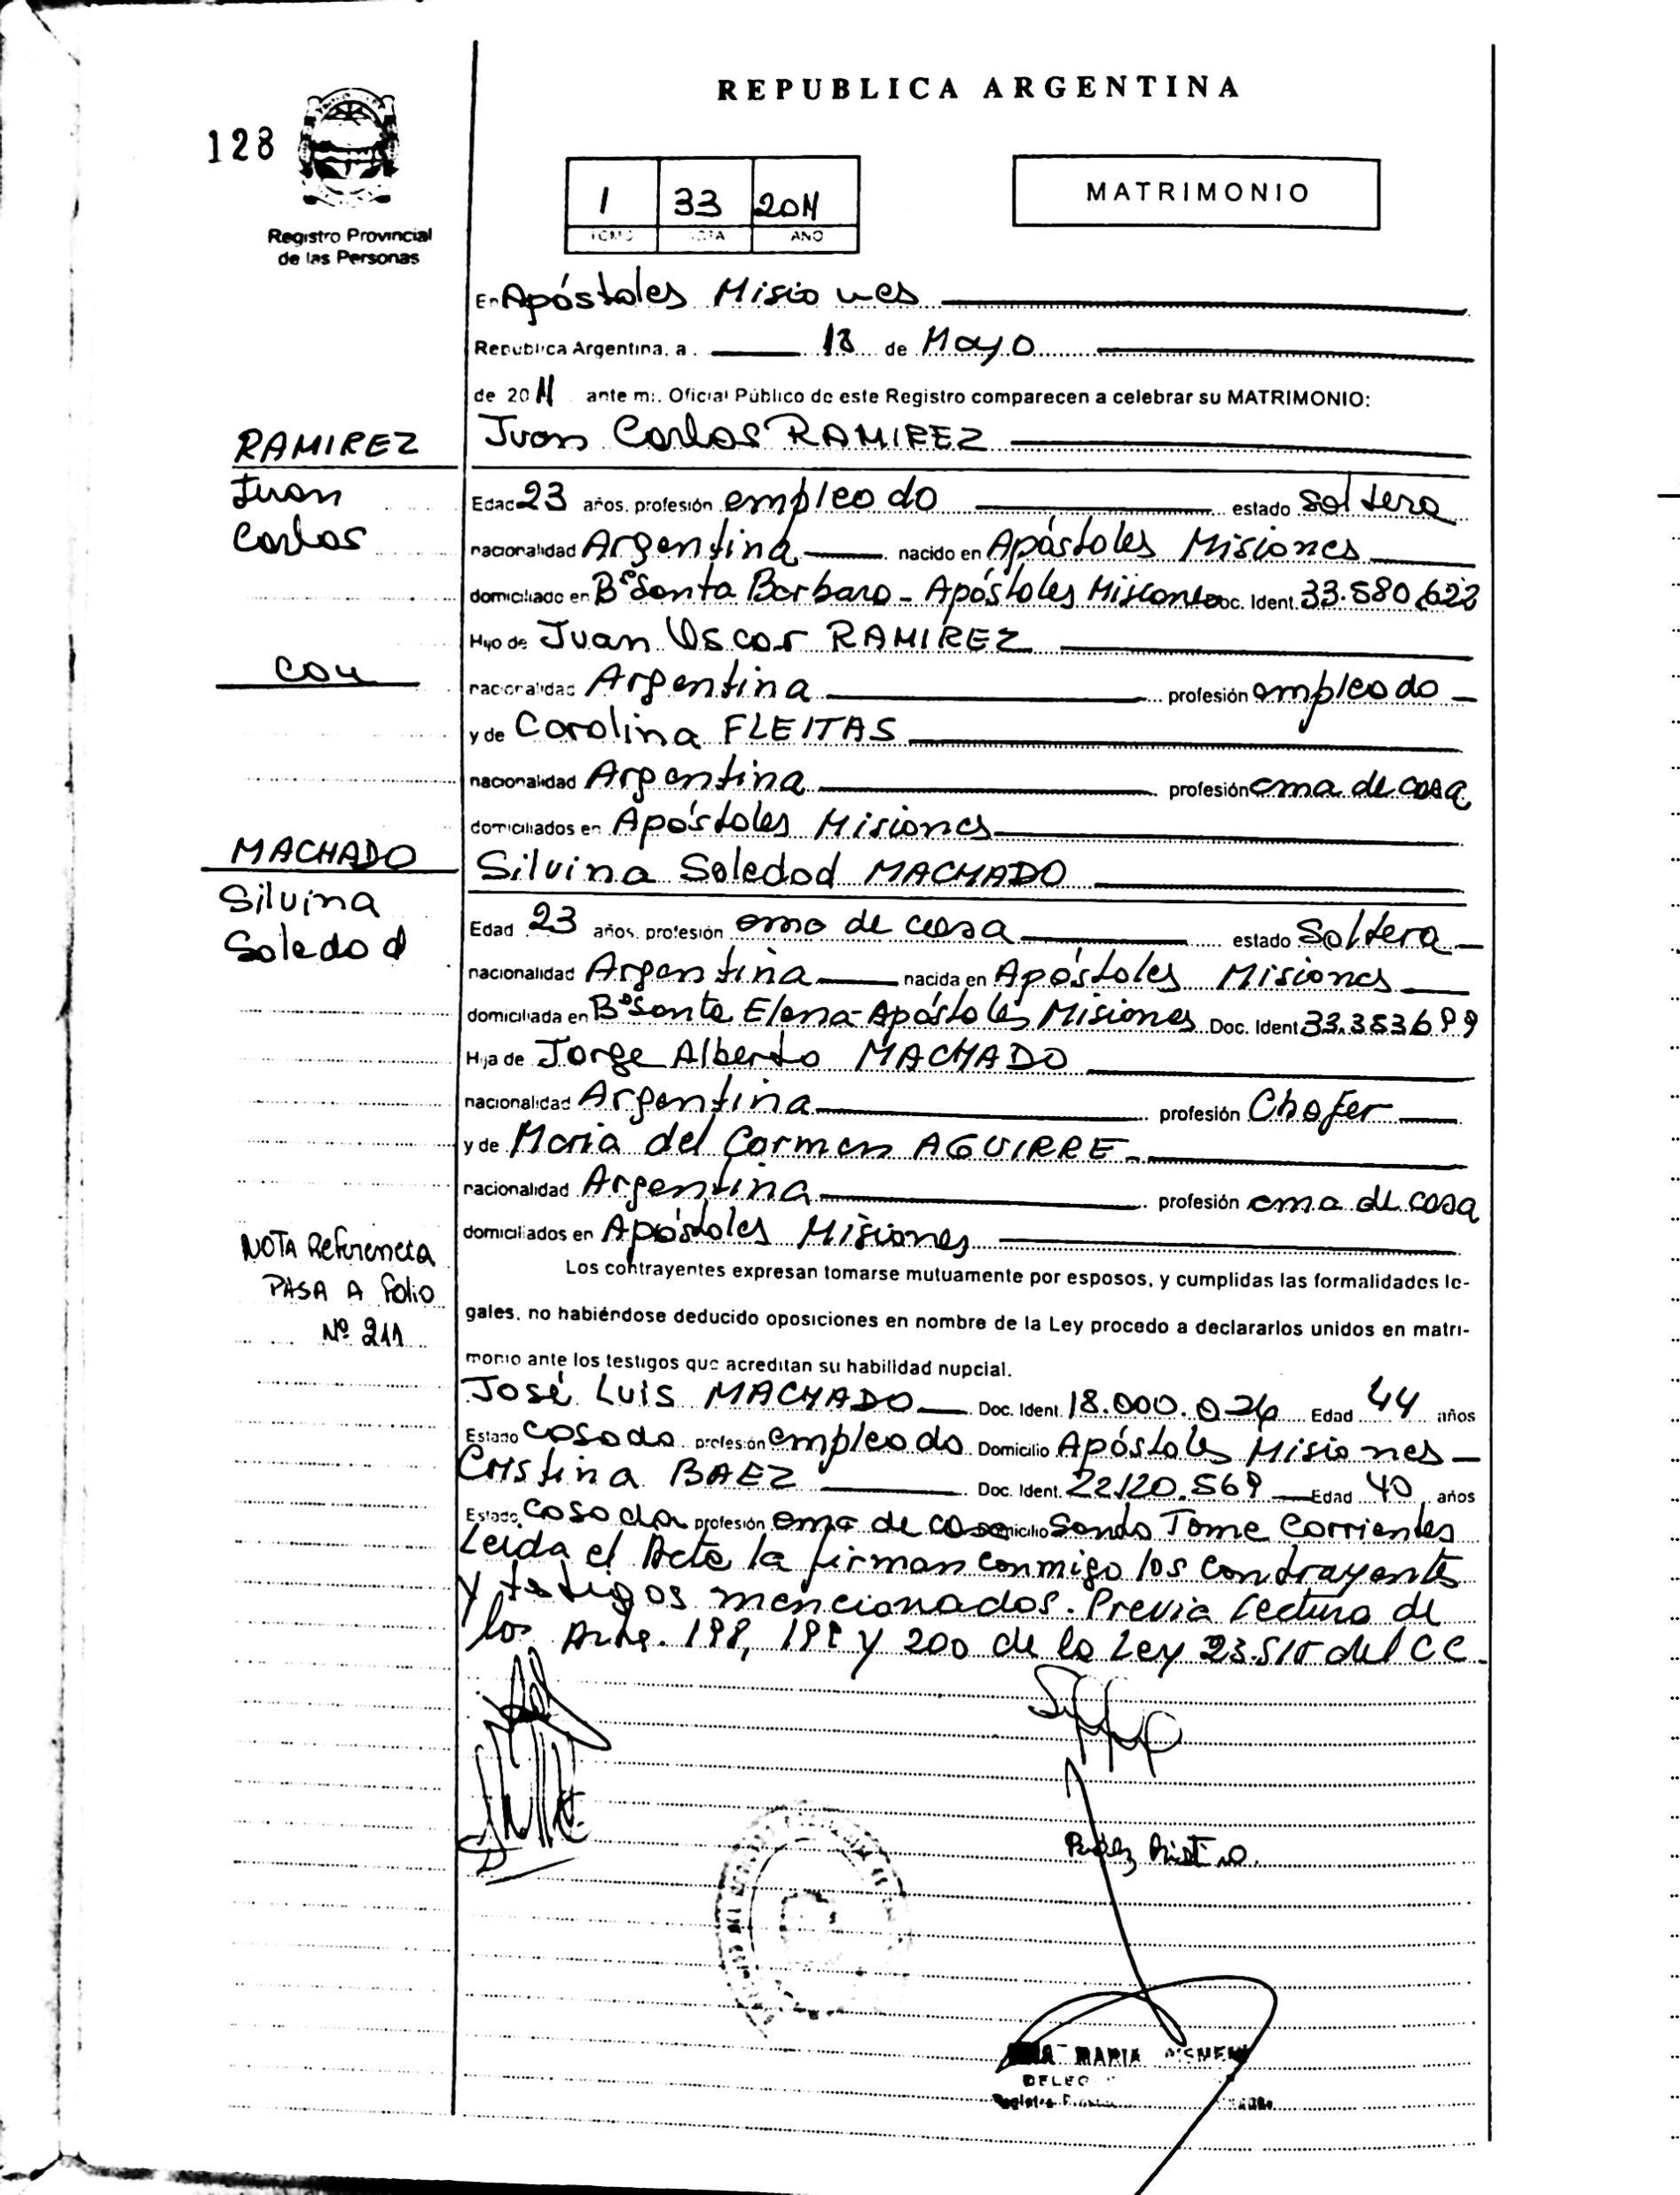 REPUBLICA ARGENTINA
128
1 33 2011
TOMO ACTA AÑO
MATRIMONIO
Registro Provincial
de las Personas
En Apóstoles Misiones
Republica Argentina, a 18 de Mayo
de 2011 ante mi, Oficial Público de este Registro comparecen a celebrar su MATRIMONIO:
RAMIREZ
Juan
Carlos
Juan Carlos RAMIREZ
Edad 23 años, profesión empleado estado soltera
nacionalidad Argentina nacido en Apóstoles Misiones
domiciliado en B° Santa Barbara - Apóstoles Misiones Doc. Ident. 33.580.622
Hijo de Juan Oscar RAMIREZ
con
nacionalidad Argentina profesión empleado
y de Carolina FLEITAS
nacionalidad Argentina profesión ama de casa
domiciliados en Apóstoles Misiones
MACHADO
Silvina
Soledad
Silvina Soledad MACHADO
Edad 23 años, profesión ama de casa estado Soltera
nacionalidad Argentina nacida en Apóstoles Misiones
domiciliada en B° Santa Elena - Apóstoles Misiones Doc. Ident. 33.383699
Hija de Jorge Alberto MACHADO
nacionalidad Argentina profesión Chofer
y de Maria del Carmen AGUIRRE
nacionalidad Argentina profesión ama de casa
domiciliados en Apóstoles Misiones
NOTA Referencia
PASA A folio
Nº 211
Los contrayentes expresan tomarse mutuamente por esposos, y cumplidas las formalidades le-
gales, no habiéndose deducido oposiciones en nombre de la Ley procedo a declararlos unidos en matri-
monio ante los testigos que acreditan su habilidad nupcial.
José Luis MACHADO Doc. Ident. 18.000.026 Edad 44 años
Estado Casado profesión empleado Domicilio Apóstoles Misiones
Cristina BAEZ Doc. Ident. 22.120.569 Edad 40 años
Estado Casada profesión ama de casa Domicilio Santo Tome Corrientes
Leida el Acta la firman conmigo los contrayentes
y testigos mencionados. Previa Lectura de
los Arts. 198, 199 y 200 de la Ley 23.515 del CC.
MARIA